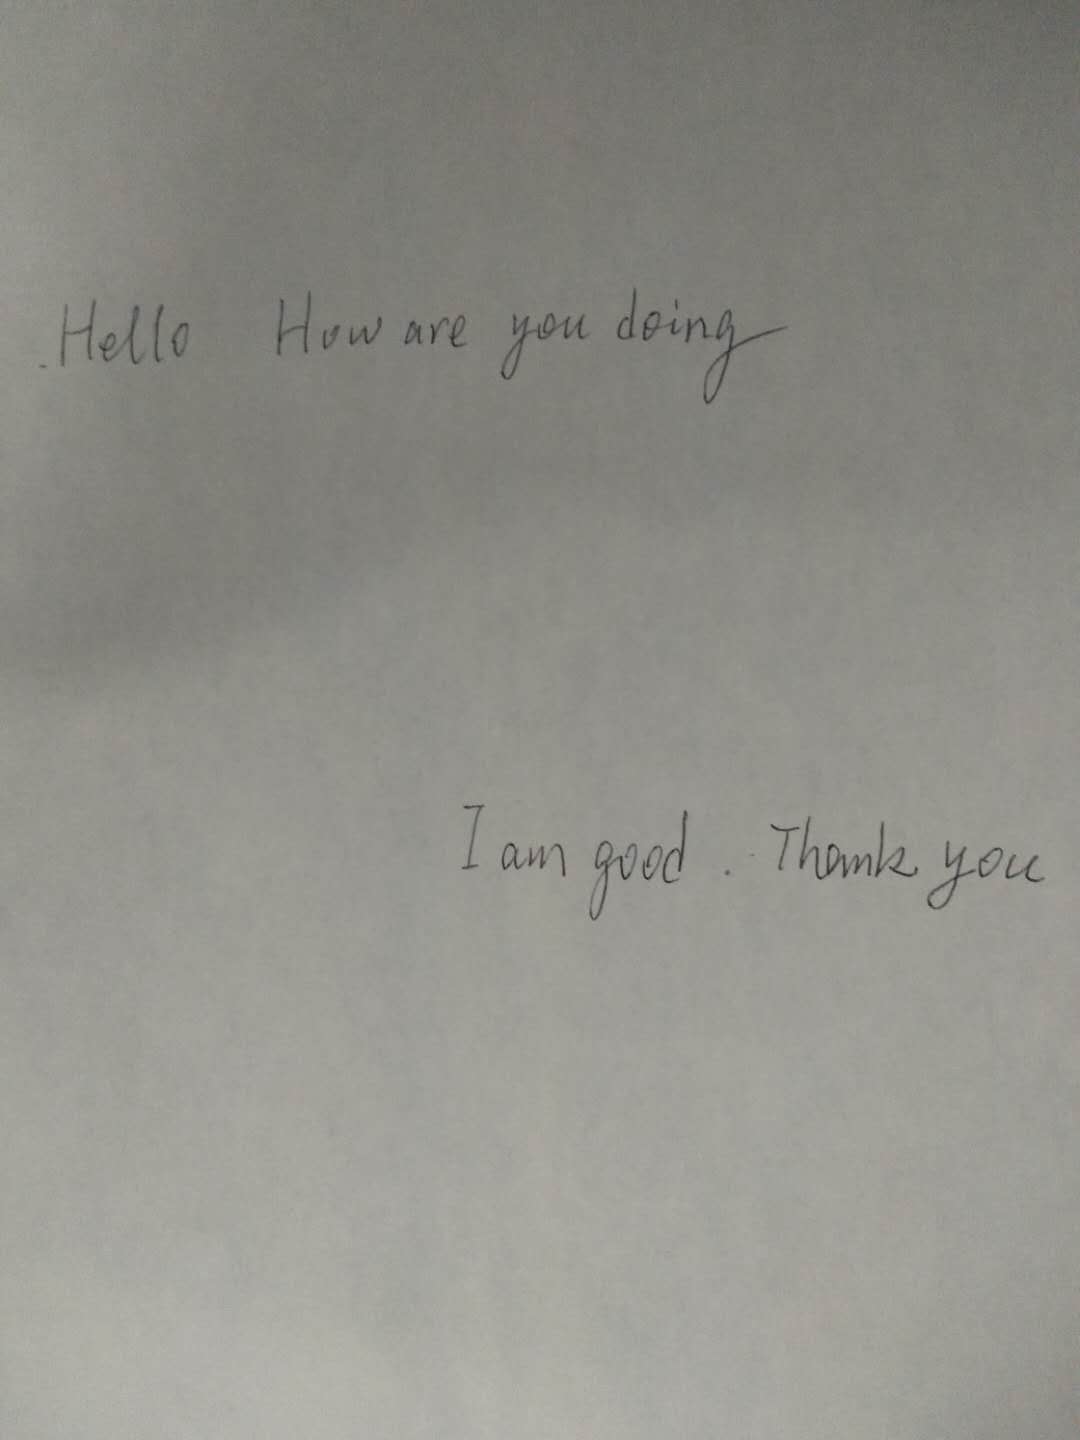 Hello How are you doing
I am good. Thank you